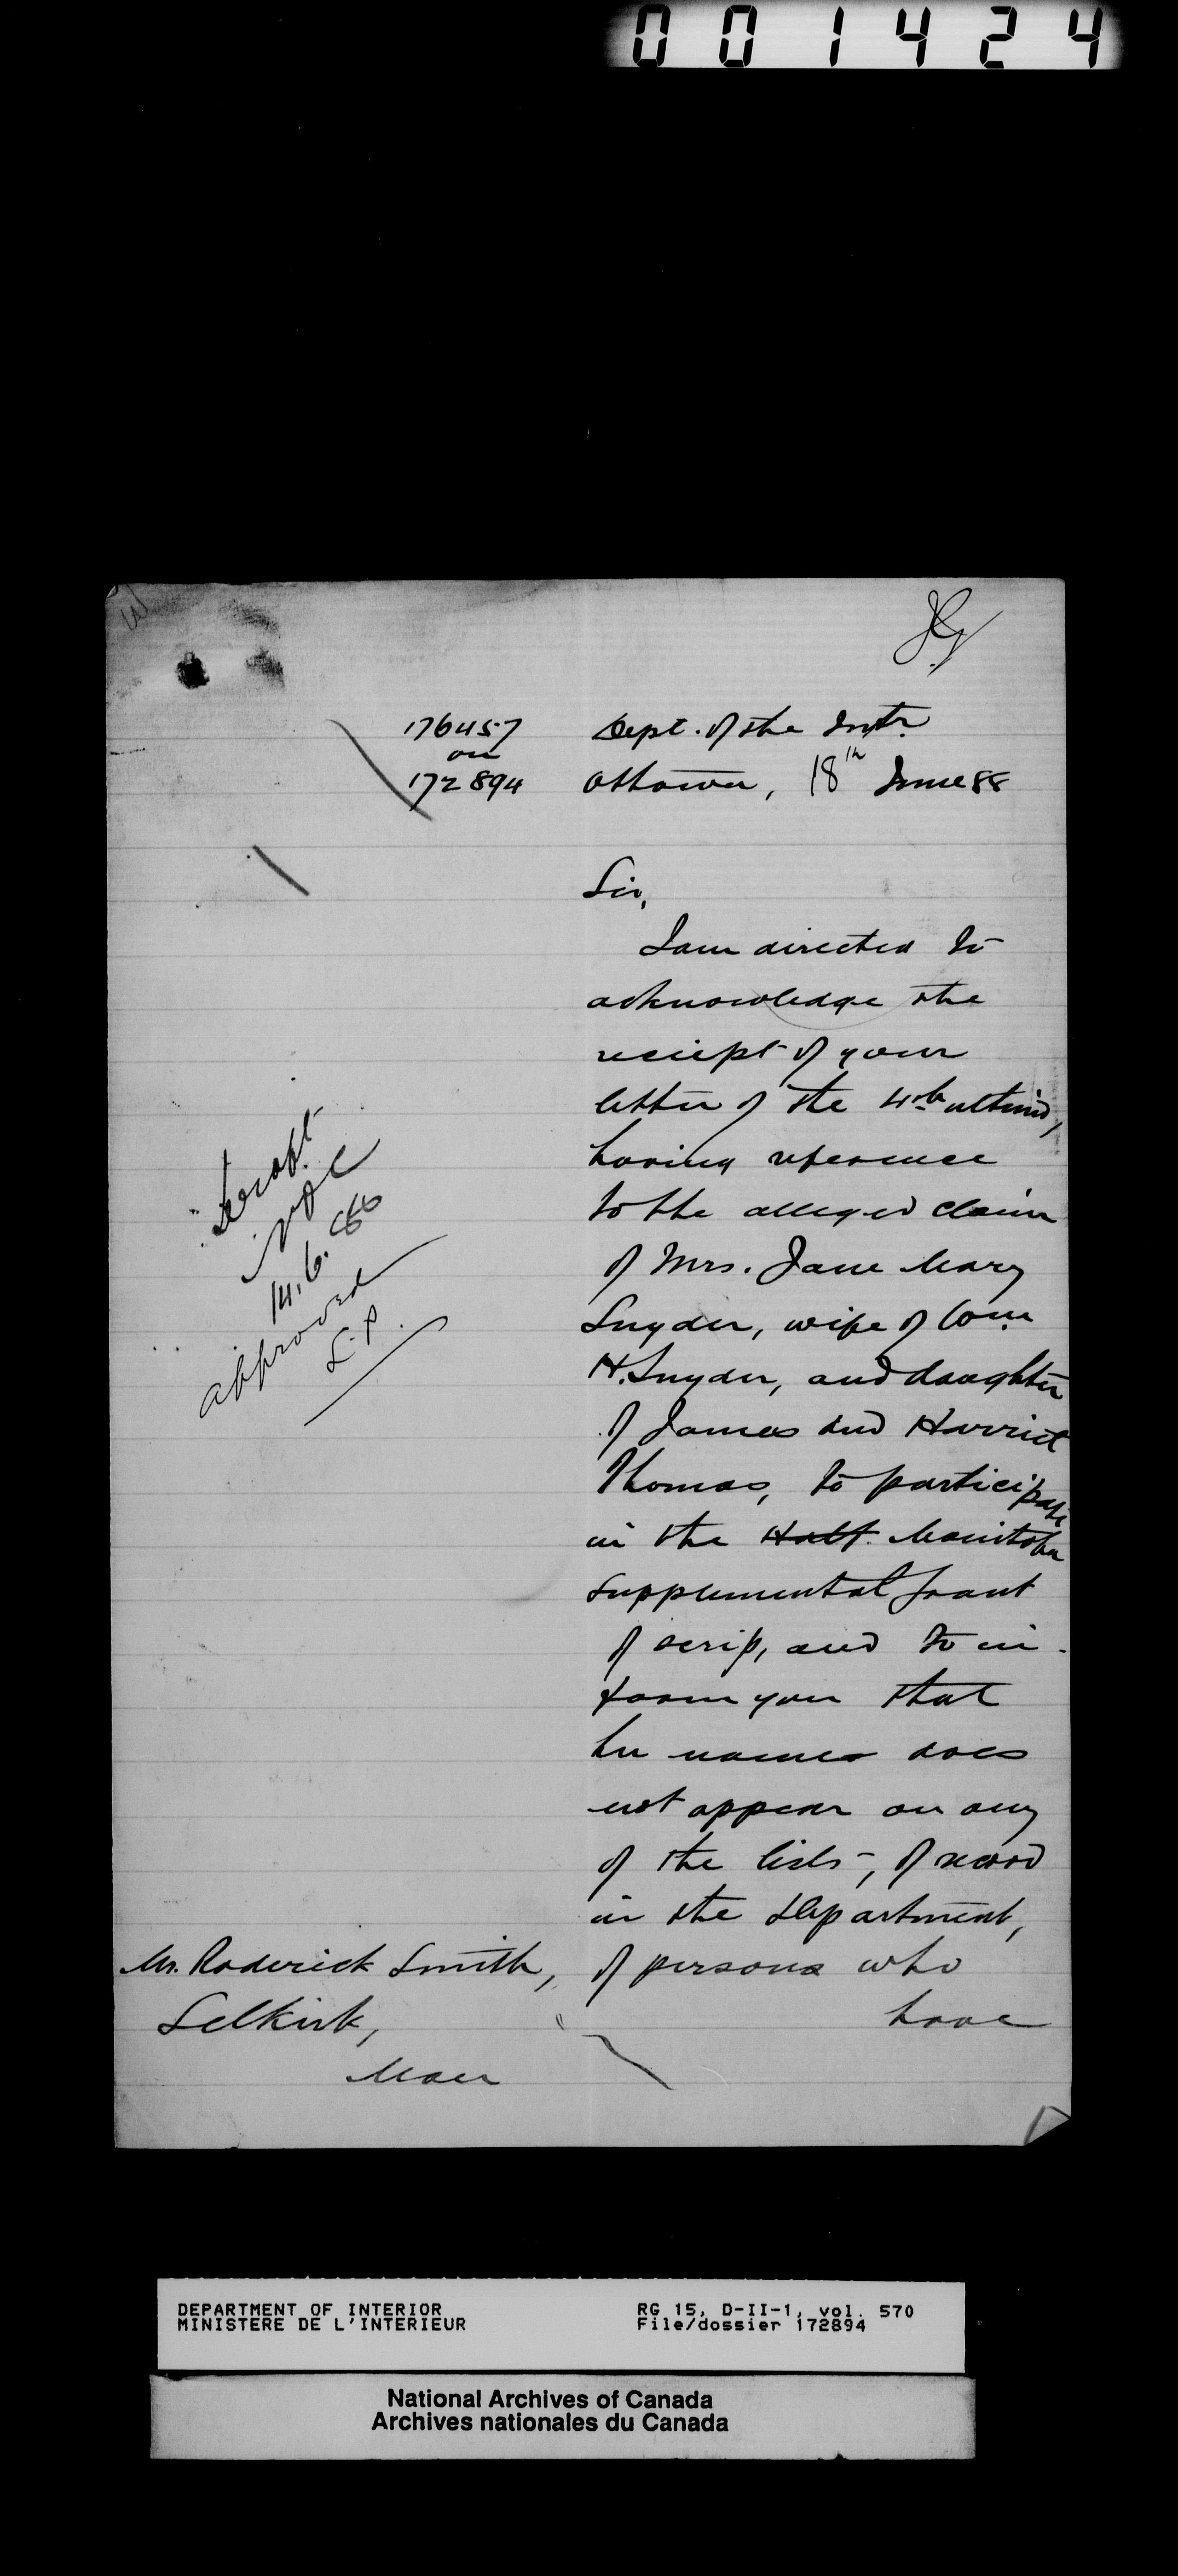 001424
176457
on
172894
Dept. of the Intr.
Ottawa, 18th June 88
Sir,
I am directed to
acknowledge the
reciept of your
letter of the 4th ultimo,
having reference
to the alleged claim
of Mrs. Jane Mary
Snyder, wife of Wm.
H. Snyder, and daughter
of James and Harriet
Thomas, to participate
in the Half Manitoba
supplemental grant
of scrip, and to in-
form you that
her names does
not appear on any
of the lists, of record
in the Department,
of persons who
have
Draft
14.6.88
approved
Mr. Roderick Smith,
Selkirk,
Man
DEPARTMENT OF INTERIOR
MINISTERE DE L'INTERIEUR
RG 15, D-II-1, vol. 570
File/dossier 172894
National Archives of Canada
Archives nationales du Canada